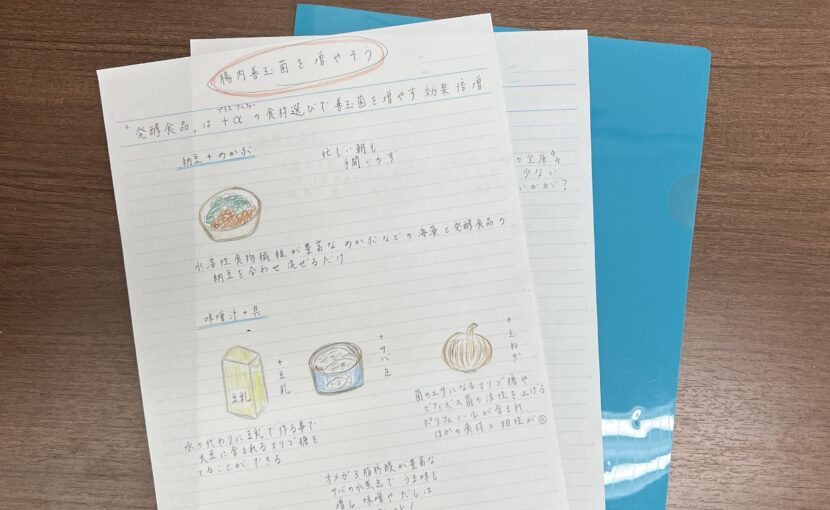 腸内善玉菌を増やそう
プラス アルファー
"発酵食品"は +α の食材選びで善玉菌を増やす効果倍増
納豆+めかぶ
忙しい朝も
手間いらず
水溶性食物繊維が豊富なめかぶなどの海藻と発酵食品の
納豆を合わせ混ぜるだけ
味噌汁+具
+豆乳
豆乳
+サバ缶
+玉ねぎ
水の代わりに豆乳で作る事で
大豆に含まれるオリゴ糖を
とることができる
菌のエサになるオリゴ糖や
ビフィズス菌の活性を上げる
ポリフェノールが含まれ
ほかの食材と相性が◎
オメガ3脂肪酸が豊富な
サバの水煮缶でうま味も
増し味噌やだしは
の宝庫
少ない
いかが?